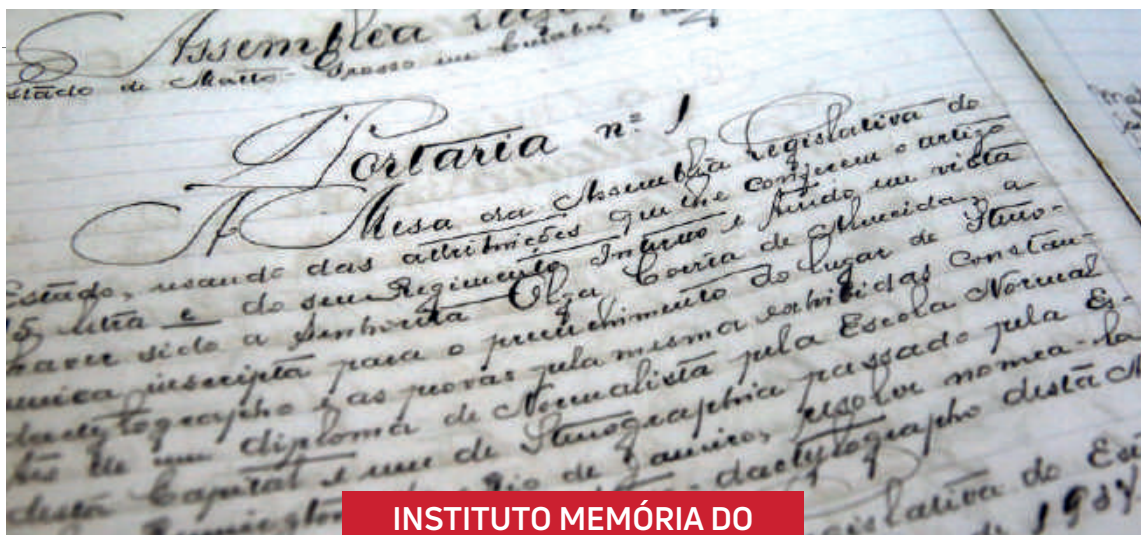 Assembléa
Estado de Matto-Grosso em Cuiabá, 6 de
Portaria n.º 1
A Mesa da Assembléa Legislativa do
Estado, usando das attribuições que lhe conferem o artigo
15, letra e do seu Regimento Interno e tendo em vista
haver sido a Senhorita Olga Corrêa de Almeida, a
unica inscripta para o preenchimento do lugar de Steno-
dactylographo e as provas pela mesma exhibidas constan-
tes de um diploma de Normalista pela Escola Normal
desta Capital e um de Stenographia passado pela Es-
Remington do Rio de Janeiro, resolve nomea-la
dactylographo desta
Legislativa do
de 1937
INSTITUTO MEMÓRIA DO